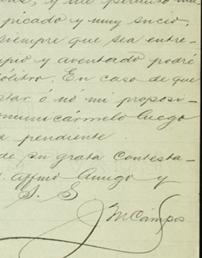 picado y muy sucio,
siempre que sea entre-
y aventado podré
olitro. En caso de que
ó nó mi proposi-
luego
pendiente
de su grata contesta-
Affmo Amigo y
S. S
JMCampos